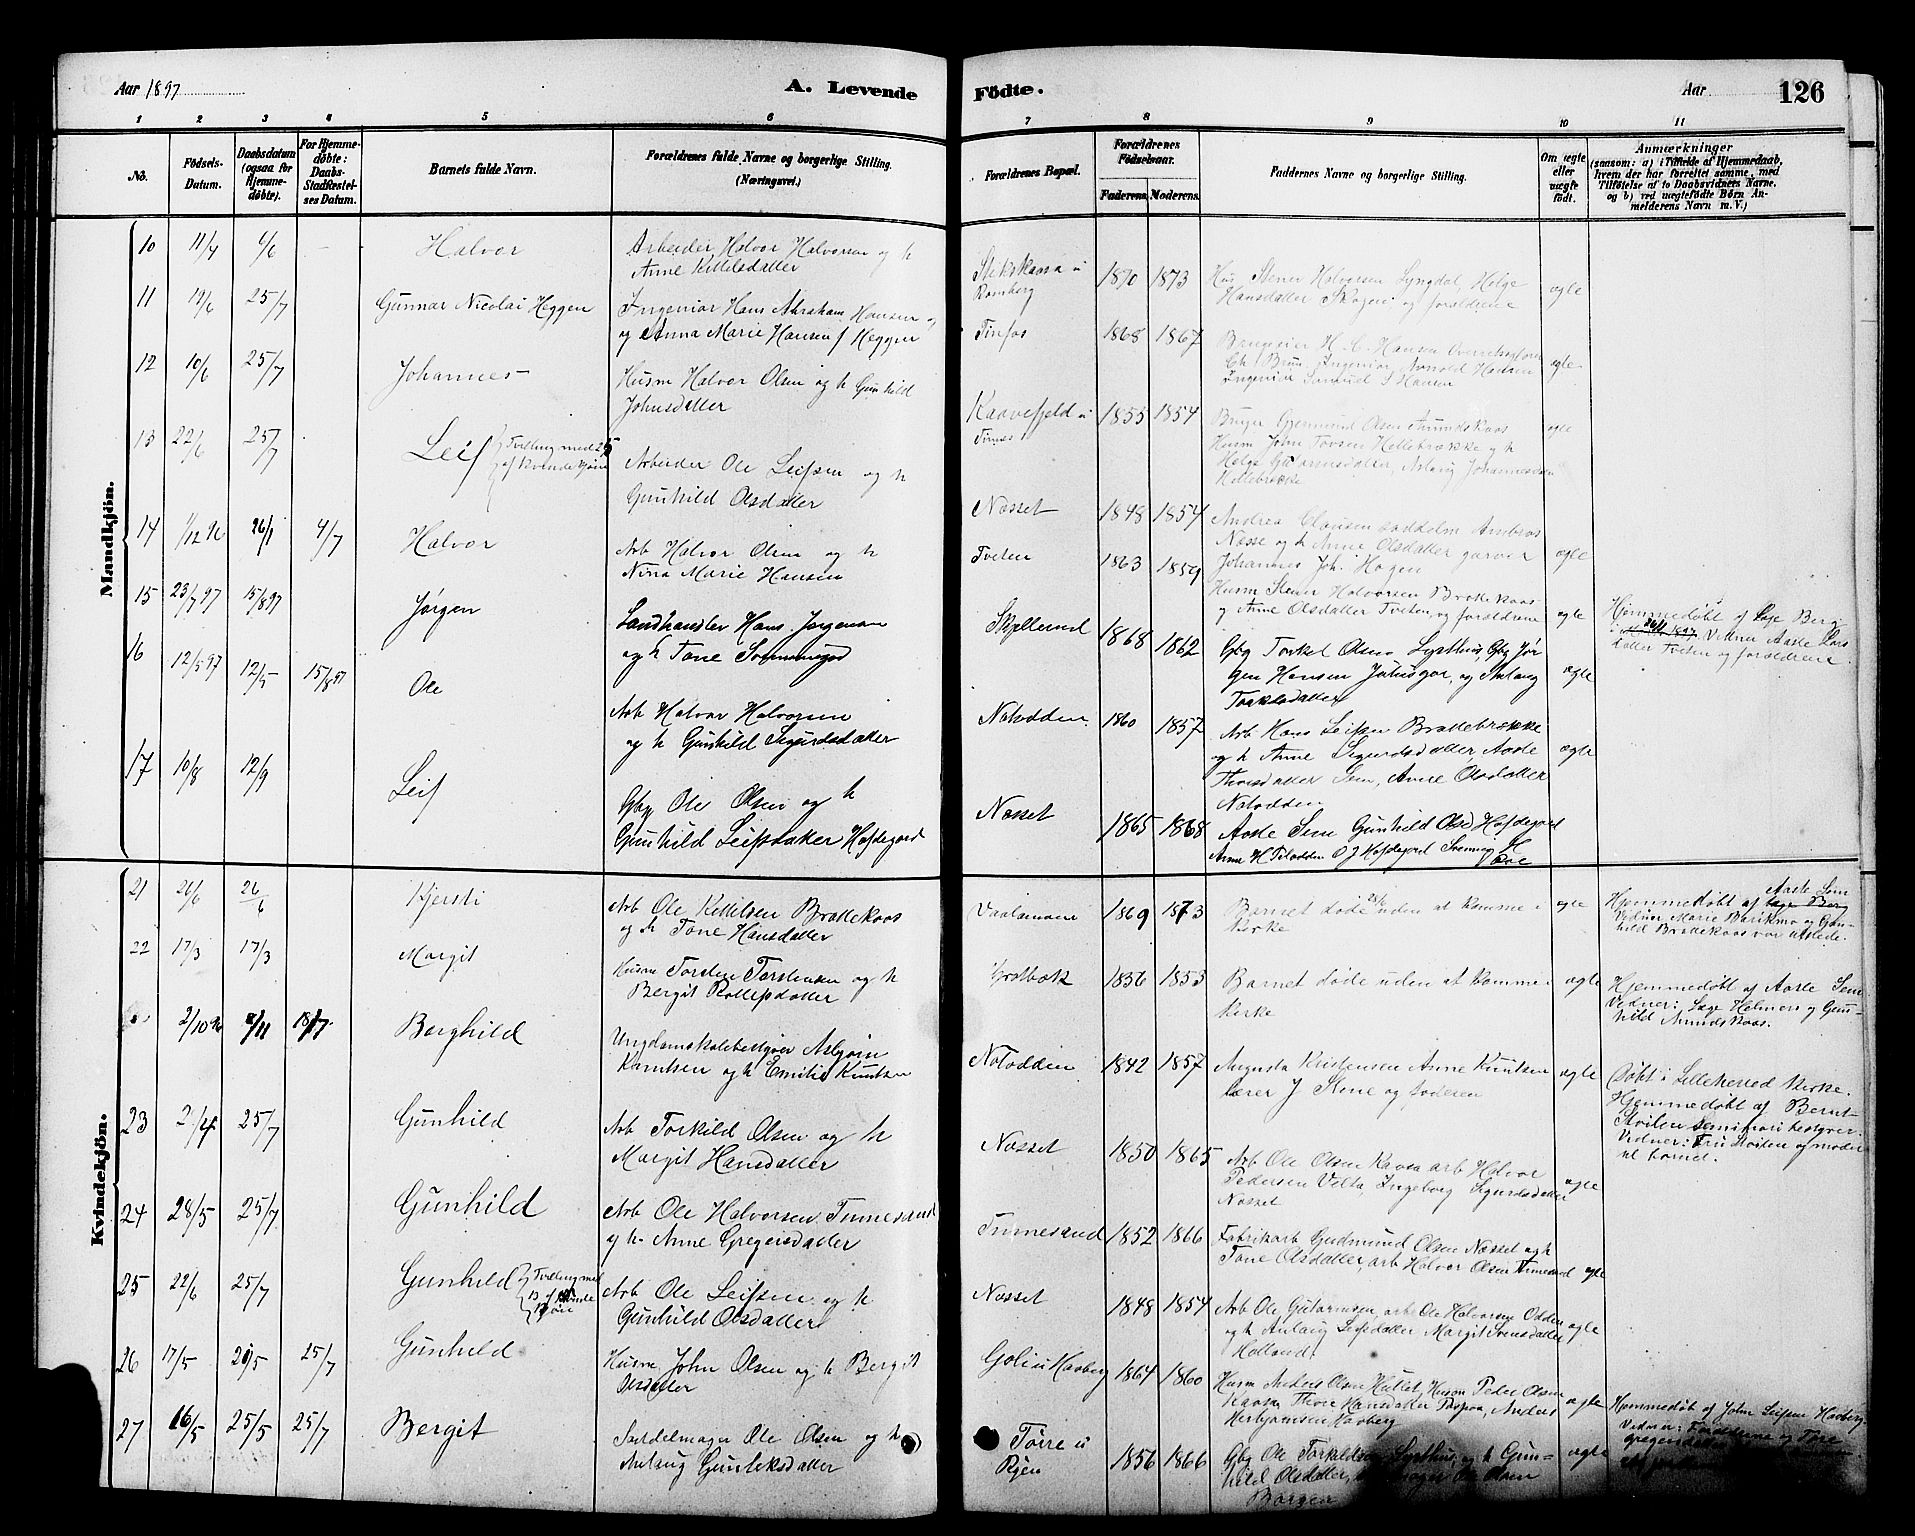 Aar 1897
A. Levende
Fødte.
Aar
126
1 2 3 4 5 6 7 8 9 10 11
No.
Fødsels-
Datum.
Daabsdatum
(ogsaa for
Hjemme-
døbte).
For Hjemme-
døbte:
Daabs-
Stadfæstel-
ses Datum.
Barnets fulde Navn.
Forældrenes fulde Navne og borgerlige Stilling.
(Næringsvei.)
Forældrenes Bopæl.
Forældrenes
Fødselsaar.
Faderens. Moderens.
Faddernes Navne og borgerlige Stilling.
Om ægte
eller
uægte
født.
Anmærkninger
(saasom: a) i Tilfælde af Hjemmedaab,
hvem der har forrettet samme, med
Tilføielse af to Daabsvidners Navne,
og b) ved uægtefødte Børn An-
melderens Navn m. V.)
Mandkjön.
10 11/4 6/6 Halvor
Arbeider Halvor Halvorsen og h
Anne Kittilsdatter
1870 1873
Hus Stener Halvorsen Lyngdal, Helge
Hansdatter Skogen og forældrene
ægte
11 19/6 25/7 Gunnar Nicolai Heggen
Ingeniør Hans Abraham Hansen og
og Anna Marie Hansen f Heggen
Tinfos 1868 1867
Brugeier H. C. Hansen
Ch Brun, Ingeniør Arnold Hansen
Ingeniør Samuel S Hansen
ægte
12 10/6 25/7 Johannes
Husm Halvor Olsen og h Gunhild
Johnsdatter
Kaavefjeld u
Tinnes 1855 1854
Bruger Gjermund Olsen Amundskaas
Husm John Tovsen Hellebrække og h
Helge Guttormsdatter, Aslaug Johannesdatter
Hellebrække
ægte
13 22/6 25/7 Leif
Tvilling med 25
af Kvindekjøn
Arbeider Ole Leifsen og h
Gunhild Olsdatter
Næsset 1848 1854
Andrea Clausen sadelm Ambros
Næsse og h Anne Olsdatter garver
Johannes Joh. Hogen
ægte
14 1/12 96 26/1 4/7 Halvor
Arb Halvor Olsen og h
Nina Marie Hansen
Tveten 1863 1859
Husm Stener Halvorsen Brattekaas
og Anne Olsdatter Tveten og forældrene
ægte
Hjemmedøbt af Lage Berg
26/1 1897. Vidner Aaste Lars
datter Tveten og forældrene.
15 23/7 97 15/8 97 Jørgen
Landhandler Hans Jørgensen
og h Tone Sommungard
Skjellerud 1868 1862
Gbg Torkel Olsen Lysthus, Gbg Jør
gen Hansen, og Aslaug
Torkilsdatter
ægte
16 12/5 97 12/5 15/8 97 Ole
Arb Halvor Halvorsen
og h Gunhild Sigurdsdatter
Notodden 1860 1857
Arb Hans Leifsen Brattebrække
og h Anne Sigurdsdatter, Aaste
Thorsdatter Sem, Anne Olsdatter
Notodden
ægte
17 10/8 12/9 Leif
Gbg Ole Olsen og h
Gunhild Leifsdatter Hofdegard
Næsset 1865 1868
Aaste Sem Gunhild Olsd Hofdegard
Kvindekjön.
21 26/6 26/6 Kjersti
Arb Ole Kittilsen Brattekaas
og h Tone Hansdatter
Vaalamoen 1869 1873
Barnet døde uden at komme i
Kirke
ægte
Hjemmedøbt af Aaste Sem
Vidner Marie Barikmo og Gun-
hild Brattekaas var tilstede.
22 17/3 17/3 Margit
Husm Torsten Torstensen og h
Bergit Rollefsdatter
Grotbæk 1856 1853
Barnet døde uden at komme i
Kirke
ægte
Hjemmedøbt af Aaste Sem
Vidner: Lage Helmers og Gun-
hild Amundskaas.
2/10 96 8/11 18/7 Borghild
Ungdomsskolebestyrer Asbjørn
Knutsen og h Emilie Knutsen
Notodden 1842 1857
Augusta Kristensen Anne Knutsen
lærer J Stene og faderen
ægte
Døbt i Lilleherred Kirke.
Hjemmedøbt af Bernt
Støilen Seminaribestyrer.
Vidner: Fru Støilen og moder
til barnet.
23 2/4 25/7 Gunhild
Arb Torkild Olsen og h
Margit Hansdatter
Næsset 1850 1865
Arb Ole Olsen Kaasa arb Halvor
Pedersen Velta, Ingeborg Sigurdsdatter
Næsset
ægte
24 28/5 25/7 Gunhild
Arb Ole Halvorsen Tinnesand
og h. Anne Gregersdatter
Tinnesand 1852 1866
Fabrikarb Gudmund Olsen Næsset og h
Tone Olsdatter, arb Halvor Olsen Tinnesand
ægte
25 22/6 25/7 Gunhild
Tvilling med
Arb Ole Leifsen og h
Gunhild Olsdatter
Næsset 1848 1854
Arb Ole Guttormsen, arb Ole Halvorsen Odden
og h Aslaug Leifsdatter Margit Svensdatter
Holland.
ægte
26 17/5 20/5 25/7 Gunhild
Husm John Olsen og h Bergit
Olsdatter
Golie u Havberg 1864 1860
Husm Anders Olsen Huttet, Husm Peder Olsen
Kaasa Thore Hansdatter, Anders
Herbjørnsen Havberg
ægte
Hjemmedøbt af John Leifsen Havberg
Vidner: Forældrene og Tore
27 16/5 25/5 25/7 Bergit
Sadelmager Ole Olsen og h
Aslaug Gunleksdatter
Tøire u
Ryen 1856 1866
Gbg Ole Torkildsen Lysthus og h Gun-
hild Olsdatter,
Borgen
ægte